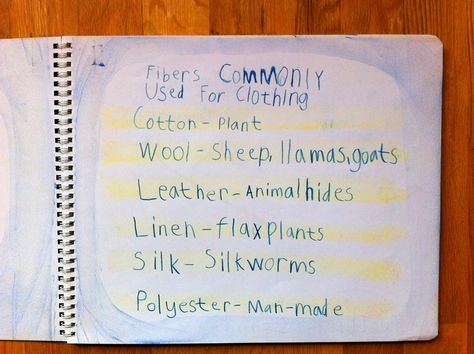 Fibers COMMONLY
Used For Clothing
Cotton - Plant
Wool - Sheep, llamas, goats
Leather - Animal hides
Linen - flax plants
Silk - Silkworms
Polyester - Man-made